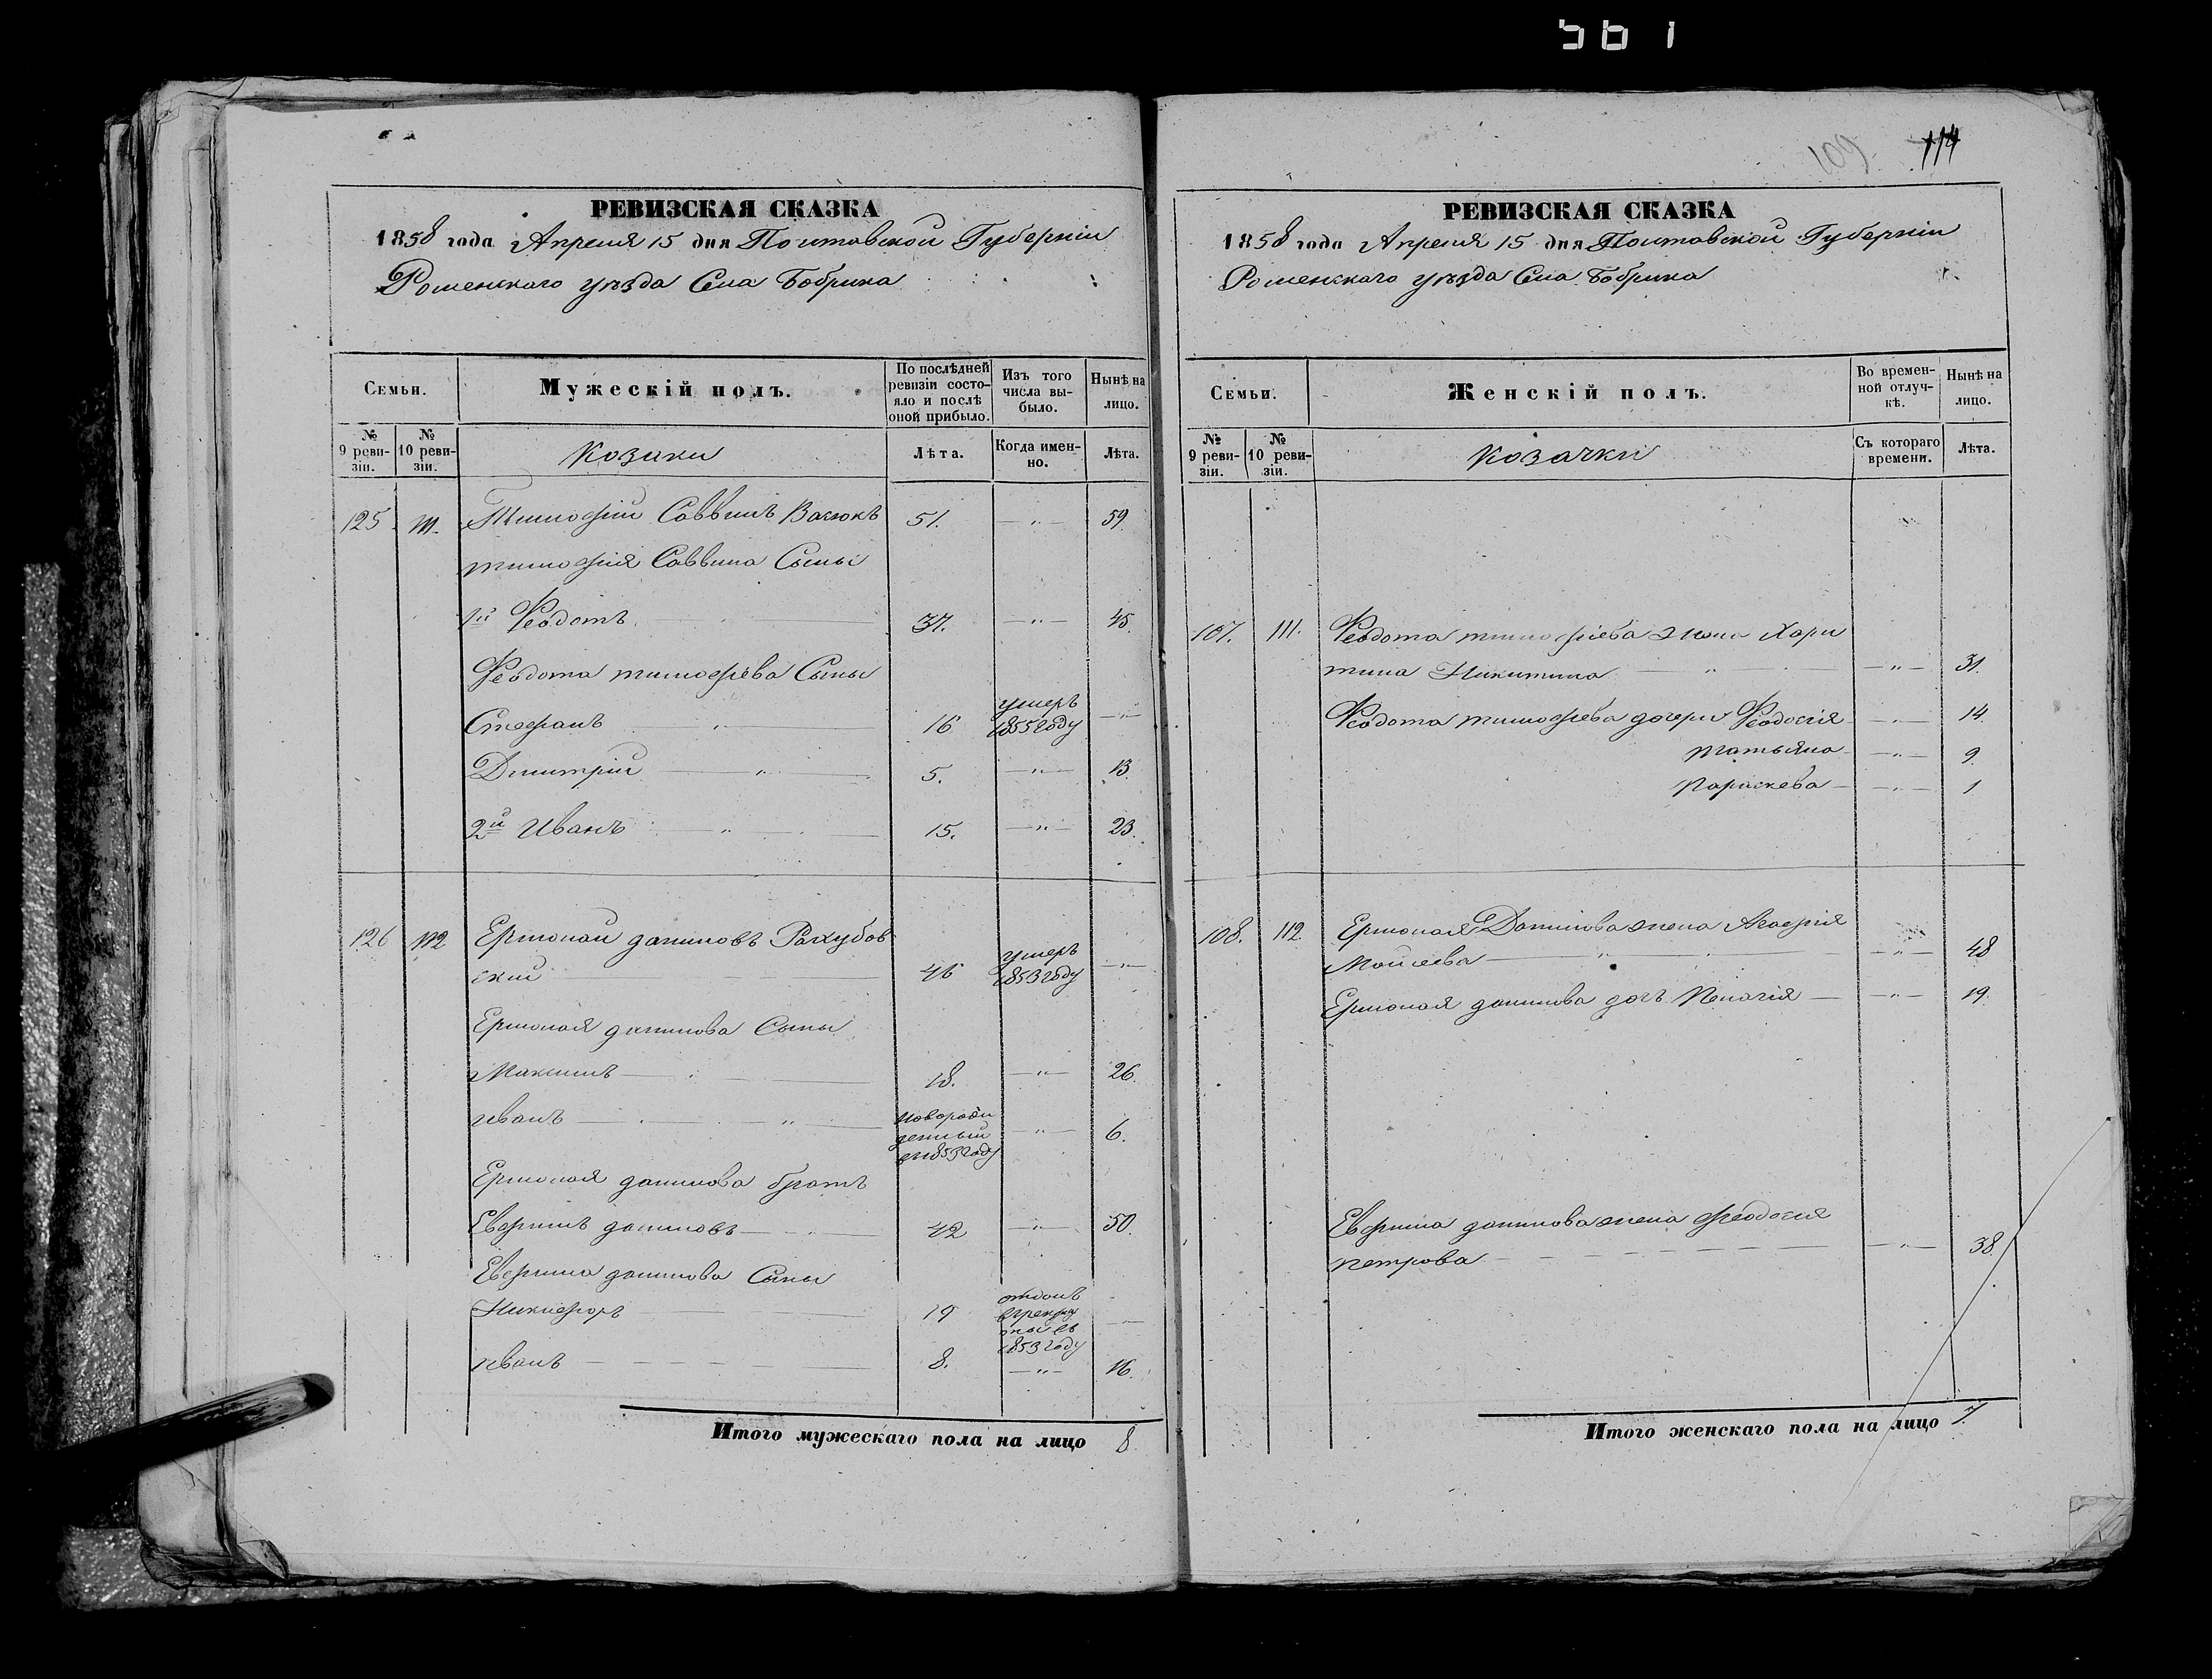 561
РЕВИЗСКАЯ СКАЗКА
1858 года Апреля 15 дня Полтавской Губерніи
Роменскаго уѣзда Села Бобрика
Семьи.
Мужескій полъ.
По послѣдней ревизіи состояло и послѣ оной прибыло.
Изъ того числа выбыло.
Нынѣ на лицо.
№ 9 ревизіи.
№ 10 ревизіи.
Козаки
Лѣта.
Когда именно.
Лѣта.
125 111. Тимофій Саввинъ Васюкъ 51. — " — 59.
тимофія Саввина Сыны
1й Феодотъ 37. — " — 45.
Феодота тимофѣева Сыны
Стефанъ — " — 16 умеръ 1855 году — " —
Дмитрій — " — 5. — " — 13.
2й Иванъ — " — 15. — " — 23.
126 112 Ермолай даниловъ
скій 46 умеръ 1853 году — " —
Ермолая данилова Сыны
Максимъ — " — 18. — " — 26.
иванъ — " — новорожденный 1853 году — " — 6.
Ермолая данилова братъ
Евфимъ даниловъ — " — 42 — " — 50.
Евфима данилова Сыны
Никифоръ — 19 отданъ в рекруты въ 1853 году —
иванъ — 8. — " — 16.
Итого мужескаго пола на лицо 8.
109 114
РЕВИЗСКАЯ СКАЗКА
1858 года Апреля 15 дня Полтавской Губерніи
Роменскаго уѣзда Села Бобрика
Семьи.
Женскій полъ.
Во временной отлучкѣ.
Нынѣ на лицо.
№ 9 ревизіи.
№ 10 ревизіи.
Козачки
Съ котораго времени.
Лѣта.
107. 111. Феодота тимофіева жена Хари
тина Никитина — " — — " — 31.
Феодота тимофѣева дочери Феодосія — " — 14.
татьяна — " — 9.
Параскева — " — 1
108. 112. Ермолая Данилова жена Агафія
Мойсеева — " — — " — 48
Ермолая данилова дочь Пелагія — " — 19.
Евфима данилова жена феодосія
петрова — — " — 38.
Итого женскаго пола на лицо 7.